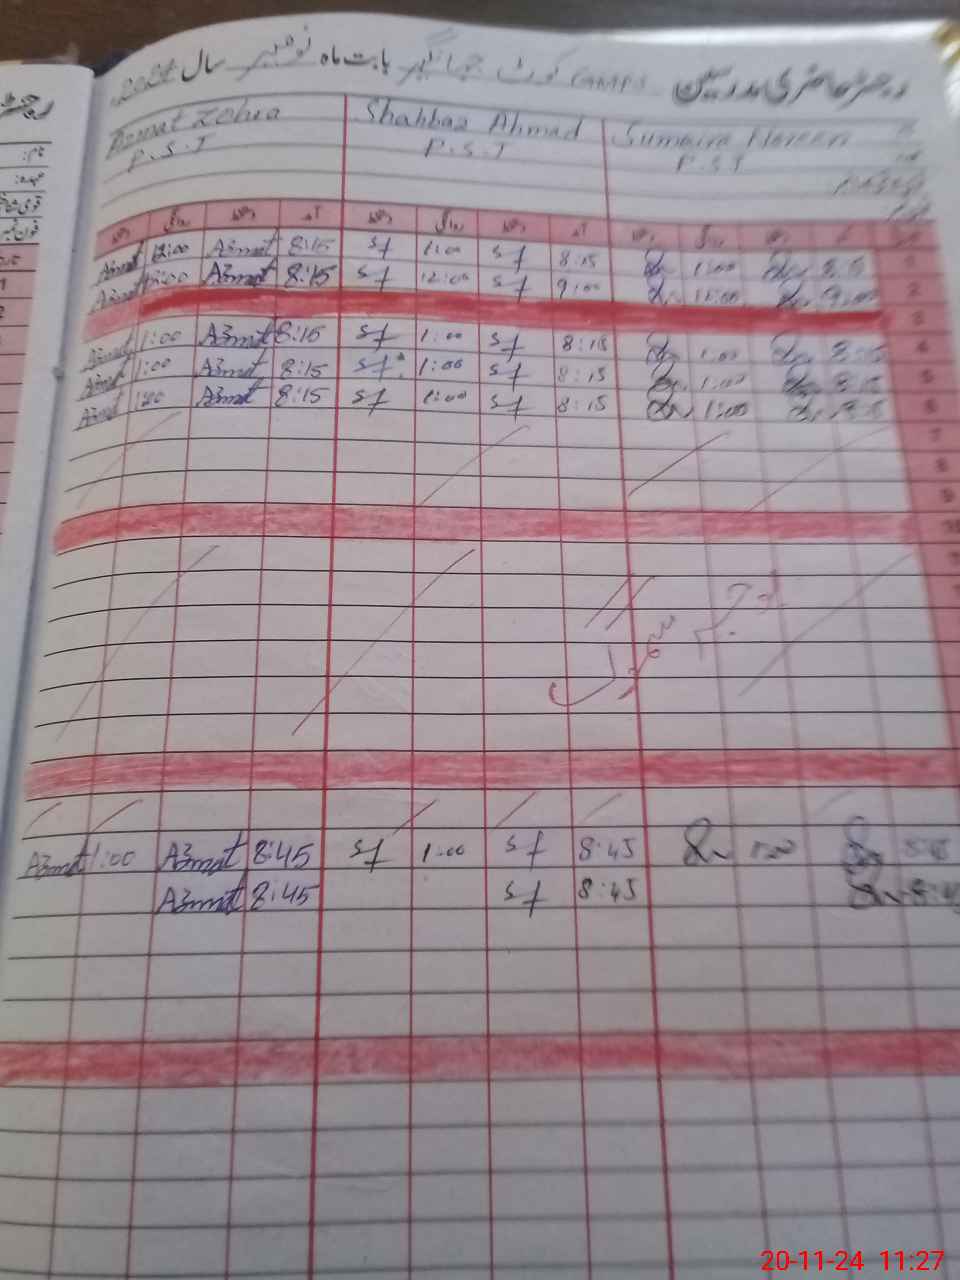 رجسٹر حاضری مدرسین GMPS کوٹ جہانگیر بابت ماہ نومبر سال 2024
Azmat Zohra Shahbaz Ahmad Sumaira Noreen
P.S.T P.S.T P.S.T
دستخط روانگی دستخط آمد دستخط روانگی دستخط آمد دستخط روانگی دستخط
Azmat 12:00 Azmat 8:15 sf 1:00 sf 8:15 1:00 8:15 1
Azmat 12:00 Azmat 8:15 sf 12:00 sf 9:00 12:00 9:00 2
3
Azmat 1:00 Azmat 8:15 sf 1:00 sf 8:15 1:00 8:15 4
Azmat 1:00 Azmat 8:15 sf 1:00 sf 8:15 1:00 8:15 5
Azmat 1:00 Azmat 8:15 sf 1:00 sf 8:15 1:00 8:15 6
7
8
9
10
Azmat 1:00 Azmat 8:45 sf 1:00 sf 8:45 1:00 8:45
Azmat 8:45 sf 8:45 8:45
20-11-24 11:27